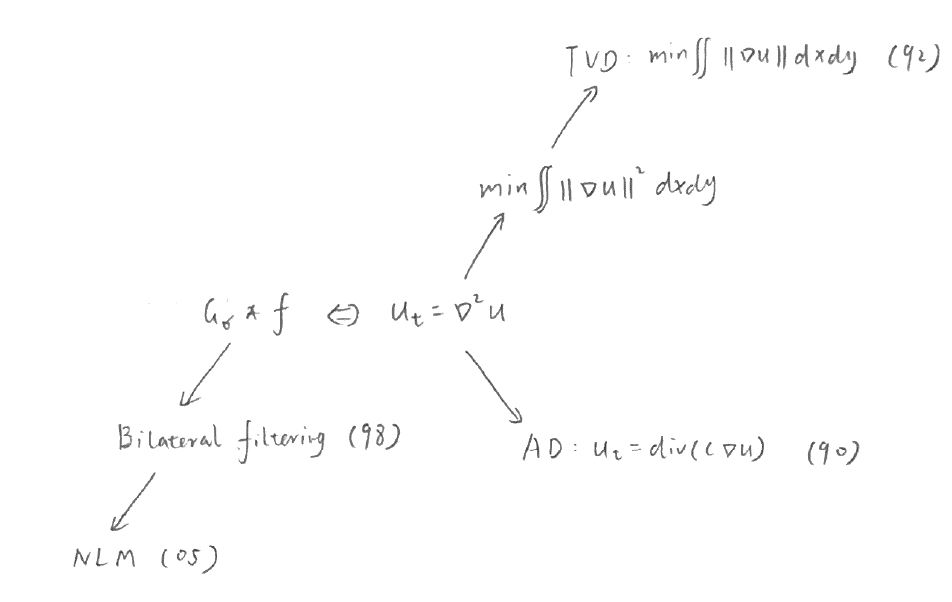 TVD: min∬ ||∇u|| dxdy (92)
min∬ ||∇u||² dxdy
Gσ * f ⇔ uₜ = ∇²u
Bilateral filtering (98)
AD: uₜ = div(c∇u) (90)
NLM (05)